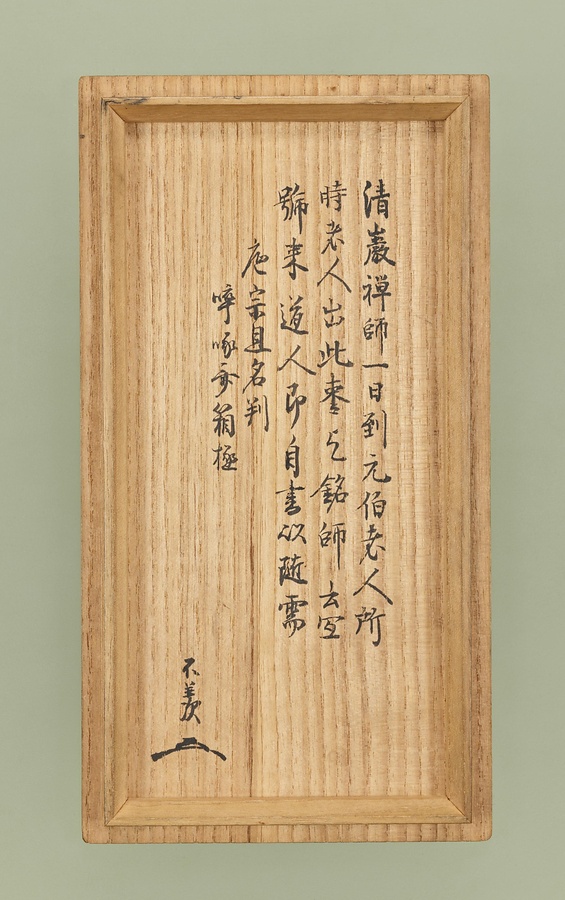 清巖禅師一日到元伯老人所
時老人出此棗乞銘師云宜
號来道人即自書以随需
庵宗旦名判
啐啄斎箱極
不羨